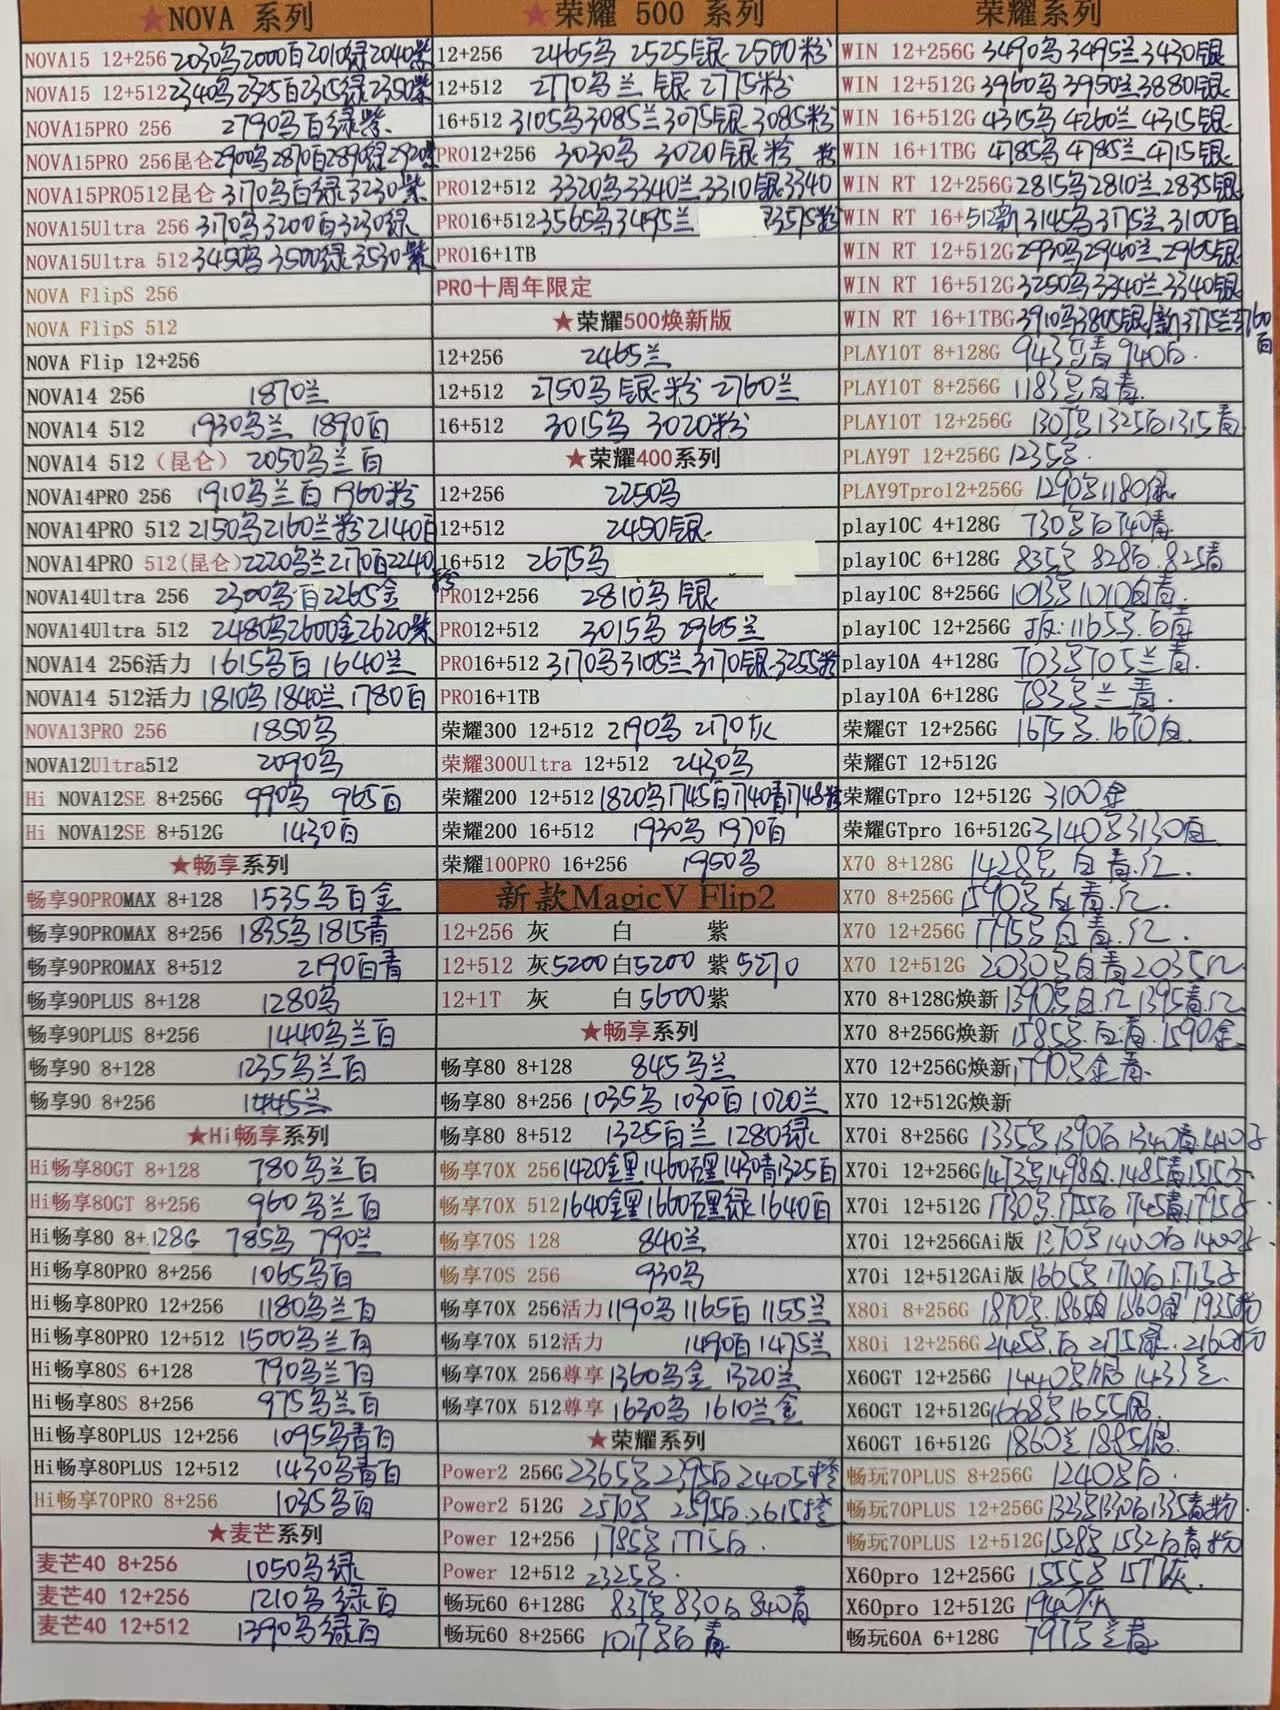 ★NOVA 系列
NOVA15 12+256 2030鸟2000百2010绿2040紫
NOVA15 12+512 2340鸟2325百2315绿2350紫
NOVA15PRO 256 2790鸟百绿紫
NOVA15PRO 256昆仑 2900鸟2870百2890绿2920紫
NOVA15PRO512昆仑 3170鸟百绿3230紫
NOVA15Ultra 256 3170鸟3200百3230绿
NOVA15Ultra 512 3450鸟3500绿3530紫
NOVA FlipS 256
NOVA FlipS 512
NOVA Flip 12+256
NOVA14 256 1870兰
NOVA14 512 1930鸟兰 1890百
NOVA14 512（昆仑） 2050鸟兰百
NOVA14PRO 256 1910鸟兰百 1960粉
NOVA14PRO 512 2150鸟2160兰粉2140百
NOVA14PRO 512(昆仑) 2220鸟兰2170百2240粉
NOVA14Ultra 256 2300鸟百2265金
NOVA14Ultra 512 2480鸟2600金2620紫
NOVA14 256活力 1615鸟百 1640兰
NOVA14 512活力 1810鸟 1840兰 1780百
NOVA13PRO 256 1850鸟
NOVA12Ultra512 2090鸟
Hi NOVA12SE 8+256G 990鸟 965百
Hi NOVA12SE 8+512G 1430百
★畅享系列
畅享90PROMAX 8+128 1535鸟百金
畅享90PROMAX 8+256 1835鸟1815青
畅享90PROMAX 8+512 2190百青
畅享90PLUS 8+128 1280鸟
畅享90PLUS 8+256 1440鸟兰百
畅享90 8+128 1235鸟兰百
畅享90 8+256 1445兰
★Hi畅享系列
Hi畅享80GT 8+128 780鸟兰百
Hi畅享80GT 8+256 960鸟兰百
Hi畅享80 8+128G 785鸟 790兰
Hi畅享80PRO 8+256 1065鸟百
Hi畅享80PRO 12+256 1180鸟兰百
Hi畅享80PRO 12+512 1500鸟兰百
Hi畅享80S 6+128 790鸟兰百
Hi畅享80S 8+256 975鸟兰百
Hi畅享80PLUS 12+256 1095鸟青百
Hi畅享80PLUS 12+512 1430鸟青百
Hi畅享70PRO 8+256 1035鸟百
★麦芒系列
麦芒40 8+256 1050鸟绿
麦芒40 12+256 1210鸟绿百
麦芒40 12+512 1390鸟绿百
★荣耀 500 系列
12+256 2465鸟 2525银 2500粉
12+512 2770鸟兰 银 2775粉
16+512 3105鸟3085兰3075银3085粉
PRO12+256 3030鸟 3020银粉
PRO12+512 3320鸟3340兰3310银3340粉
PRO16+512 3565鸟3495兰 3575粉
PRO16+1TB
PRO十周年限定
★荣耀500焕新版
12+256 2465兰
12+512 2750鸟银粉 2760兰
16+512 3015鸟 3020粉
★荣耀400系列
12+256 2250鸟
12+512 2450银
16+512 2675鸟
PRO12+256 2810鸟银
PRO12+512 3015鸟 2965兰
PRO16+512 3170鸟3105兰3170银3255粉
PRO16+1TB
荣耀300 12+512 2190鸟 2170灰
荣耀300Ultra 12+512 2430鸟
荣耀200 12+512 1820鸟1745百1740青1748粉
荣耀200 16+512 1930鸟 1970百
荣耀100PRO 16+256 1950鸟
新款MagicV Flip2
12+256 灰 白 紫
12+512 灰5200 白5200 紫5270
12+1T 灰 白5600 紫
★畅享系列
畅享80 8+128 845鸟兰
畅享80 8+256 1035鸟 1030百 1020兰
畅享80 8+512 1325百兰 1280绿
畅享70X 256 1420金黑1460石黑1430青1325百
畅享70X 512 1640金黑1600石黑绿1640百
畅享70S 128 840兰
畅享70S 256 930鸟
畅享70X 256活力 1190鸟 1165百 1155兰
畅享70X 512活力 1490百 1475兰
畅享70X 256尊享 1360鸟金 1320兰
畅享70X 512尊享 1630鸟 1610兰金
★荣耀系列
Power2 256G 2365鸟 2395百 2405橙
Power2 512G 2570鸟 2595百 2615橙
Power 12+256 1785鸟 1775百
Power 12+512 2325鸟
畅玩60 6+128G 837鸟 830百 840青
畅玩60 8+256G 1017鸟百青
荣耀系列
WIN 12+256G 3490鸟3495兰3430银
WIN 12+512G 3960鸟3950兰3880银
WIN 16+512G 4315鸟4260兰4315银
WIN 16+1TBG 4785鸟4785兰4715银
WIN RT 12+256G 2815鸟2810兰2835银
WIN RT 16+512新 3145鸟3175兰3100百
WIN RT 12+512G 2930鸟2940兰2965银
WIN RT 16+512G 3250鸟3340兰3340银
WIN RT 16+1TBG 3910鸟3805银/新3775兰3760百
PLAY10T 8+128G 943鸟青940百
PLAY10T 8+256G 1183鸟百青
PLAY10T 12+256G 1307鸟1325百1315青
PLAY9T 12+256G 1235鸟
PLAY9Tpro12+256G 1290鸟1180绿
play10C 4+128G 730鸟百740青
play10C 6+128G 835鸟 828百 825青
play10C 8+256G 1013鸟1010百青
play10C 12+256G 1165鸟百青
play10A 4+128G 703鸟705兰青
play10A 6+128G 783鸟兰青
荣耀GT 12+256G 1675鸟 1670百
荣耀GT 12+512G
荣耀GTpro 12+512G 3100金
荣耀GTpro 16+512G 3140鸟3130百
X70 8+128G 1428鸟百青红
X70 8+256G 1590鸟百青红
X70 12+256G 1795鸟百青红
X70 12+512G 2030鸟百青2035红
X70 8+128G焕新 1390鸟百红1395青红
X70 8+256G焕新 1585鸟百青 1590金
X70 12+256G焕新 1790鸟金青
X70 12+512G焕新
X70i 8+256G 1335鸟1390百1340青1410子
X70i 12+256G 1473鸟1498百1485青1515子
X70i 12+512G 1730鸟1755百1745青1795子
X70i 12+256GAi版 1370鸟1400百1400子
X70i 12+512GAi版 1665鸟1710百1715子
X80i 8+256G 1870鸟1865百 1935粉
X80i 12+256G 百 2175绿 2160粉
X60GT 12+256G 1440鸟 1433兰
X60GT 12+512G 1668鸟1655
X60GT 16+512G 1860兰 1885
畅玩70PLUS 8+256G 1240鸟百
畅玩70PLUS 12+256G 1323鸟1330百1335青粉
畅玩70PLUS 12+512G 1528鸟1532百青粉
X60pro 12+256G 1555鸟 1577灰
X60pro 12+512G 1940灰
畅玩60A 6+128G 797鸟兰青